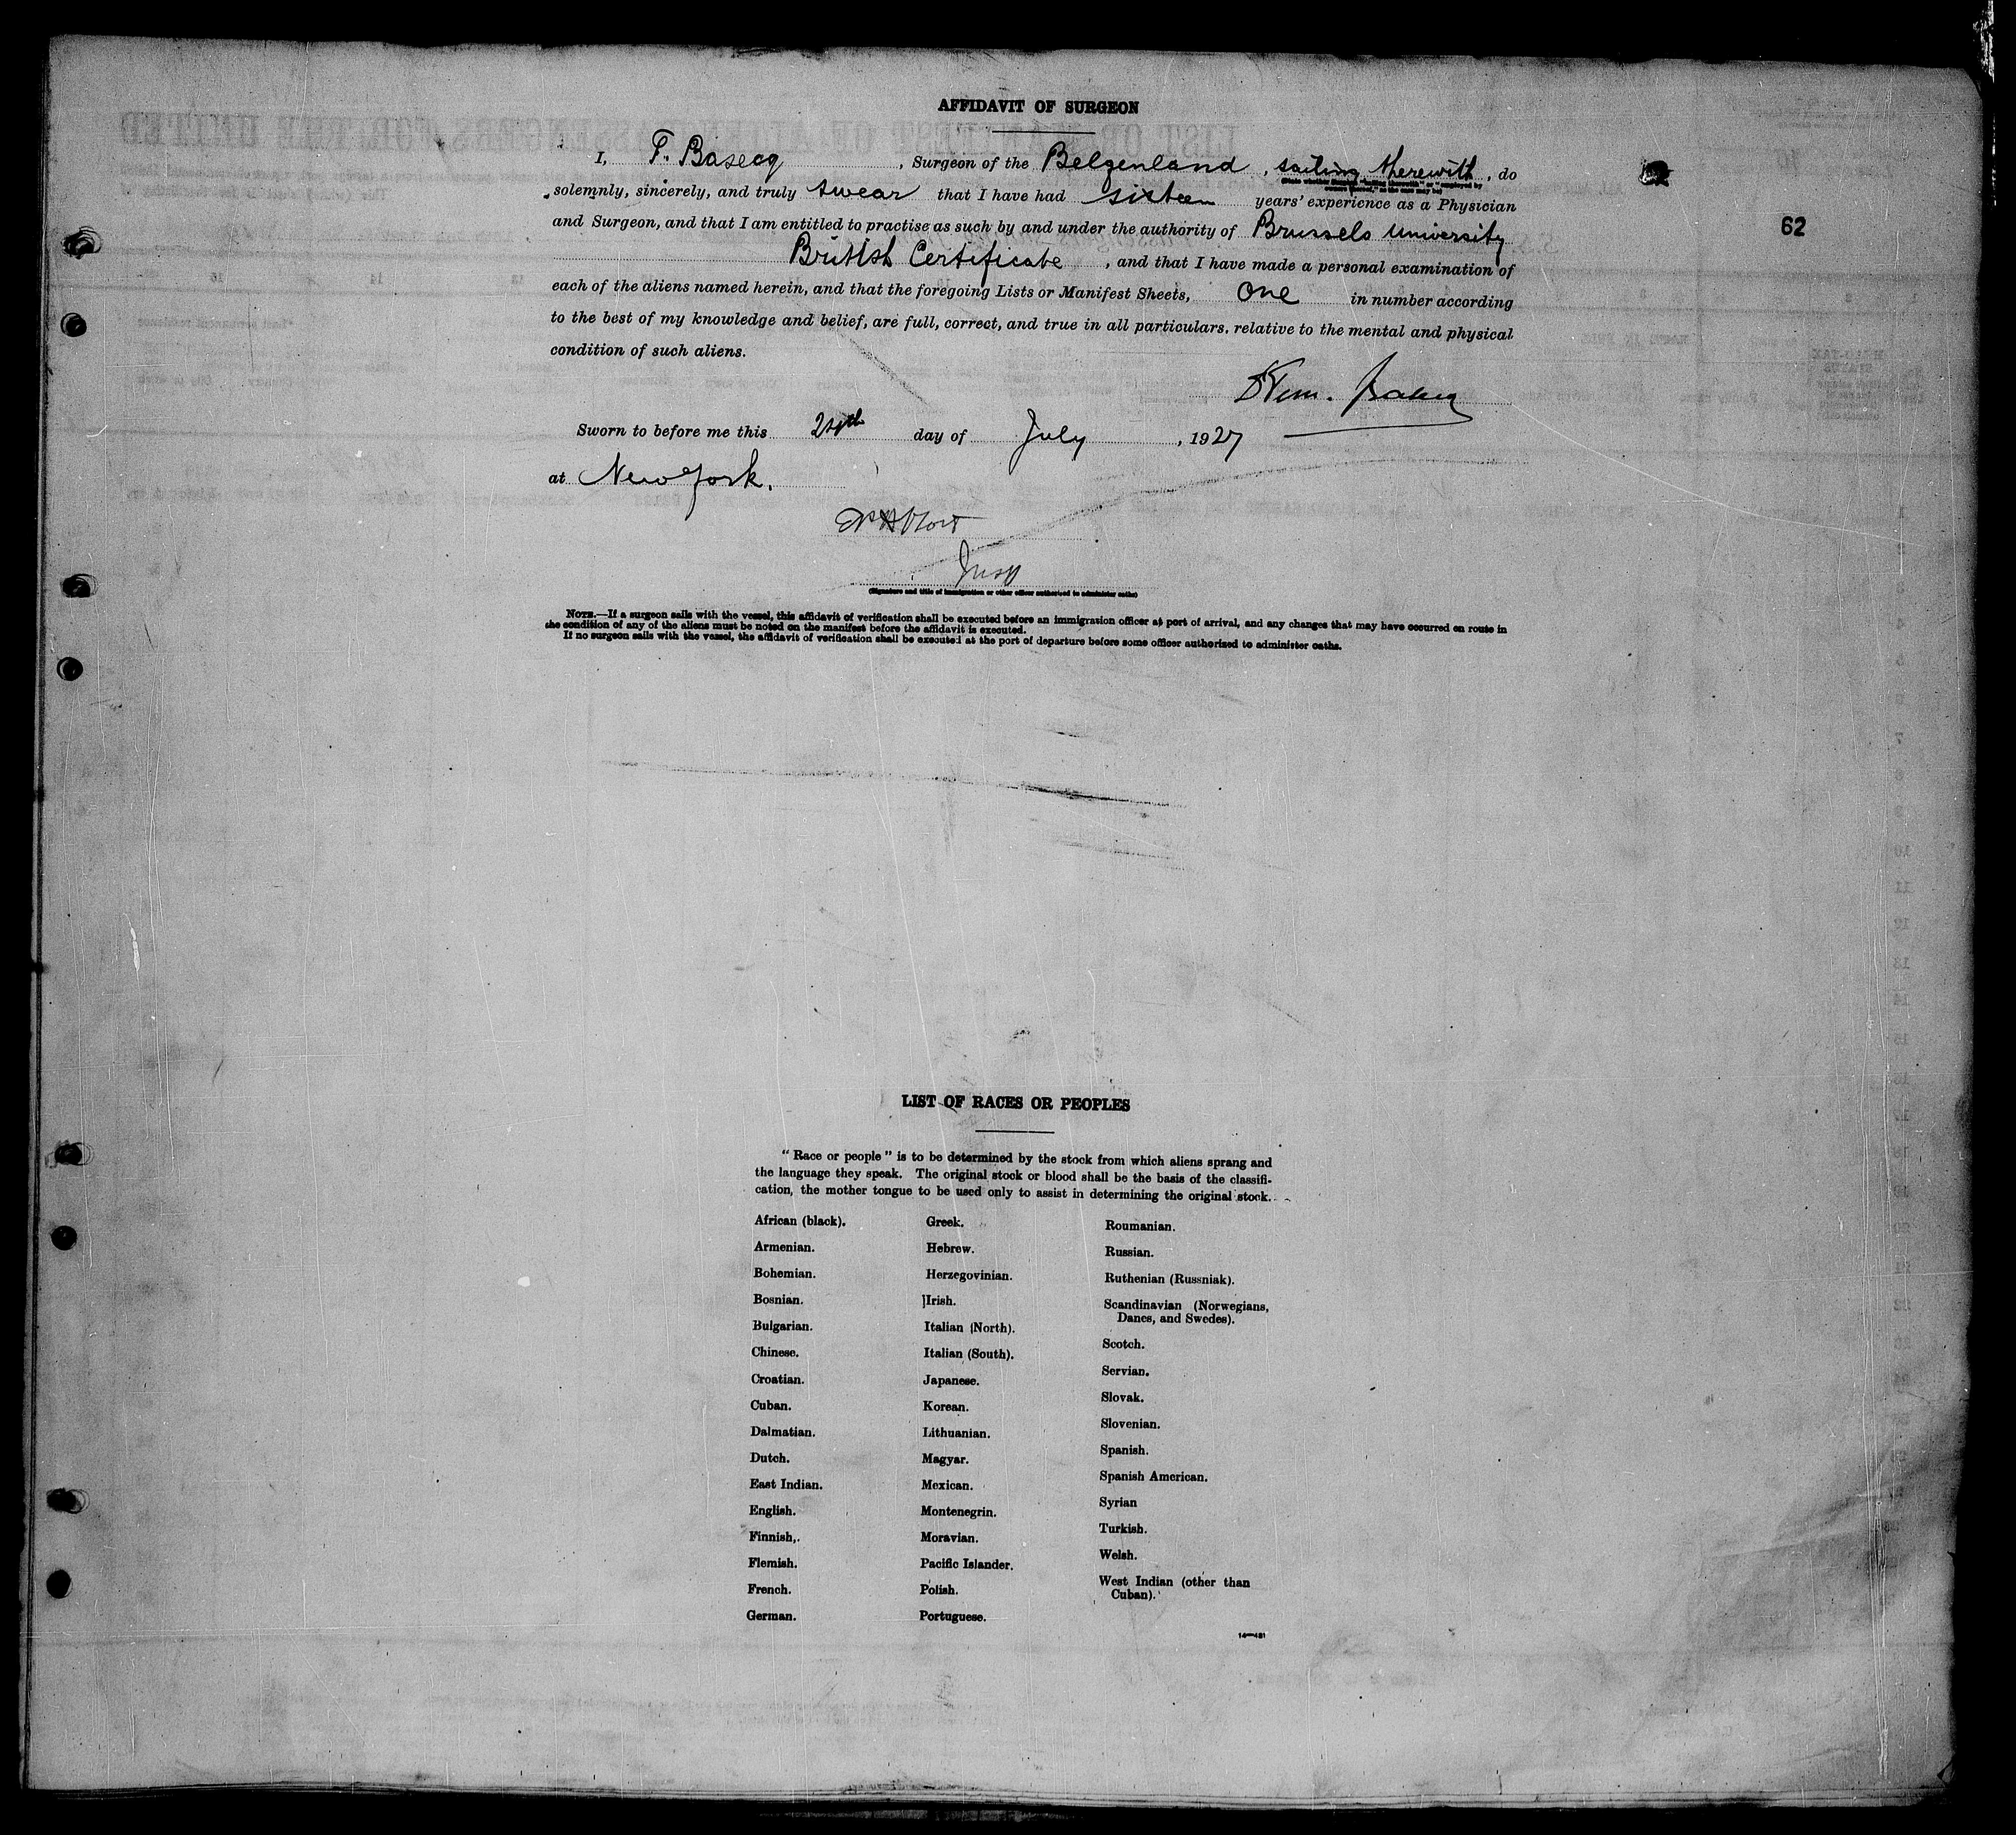 AFFIDAVIT OF SURGEON
I, F. Basecq, Surgeon of the Belgenland, sailing therewith, do
(State whether surgeon "sailing therewith" or "employed by
owners thereof," as the case may be)
solemnly, sincerely, and truly swear that I have had sixteen years' experience as a Physician
62
and Surgeon, and that I am entitled to practise as such by and under the authority of Brussels University
British Certificate, and that I have made a personal examination of
each of the aliens named herein, and that the foregoing Lists or Manifest Sheets, One in number according
to the best of my knowledge and belief, are full, correct, and true in all particulars, relative to the mental and physical
condition of such aliens.
Sworn to before me this 24th day of July, 1927
at New York.
Insp
(Signature and title of immigration or other officer authorised to administer oaths)
NOTE.—If a surgeon sails with the vessel, this affidavit of verification shall be executed before an immigration officer at port of arrival, and any changes that may have occurred en route in
the condition of any of the aliens must be noted on the manifest before the affidavit is executed.
If no surgeon sails with the vessel, the affidavit of verification shall be executed at the port of departure before some officer authorized to administer oaths.
LIST OF RACES OR PEOPLES
"Race or people" is to be determined by the stock from which aliens sprang and
the language they speak. The original stock or blood shall be the basis of the classifi-
cation, the mother tongue to be used only to assist in determining the original stock.
African (black).
Armenian.
Bohemian.
Bosnian.
Bulgarian.
Chinese.
Croatian.
Cuban.
Dalmatian.
Dutch.
East Indian.
English.
Finnish,.
Flemish.
French.
German.
Greek.
Hebrew.
Herzegovinian.
Irish.
Italian (North).
Italian (South).
Japanese.
Korean.
Lithuanian.
Magyar.
Mexican.
Montenegrin.
Moravian.
Pacific Islander.
Polish.
Portuguese.
Roumanian.
Russian.
Ruthenian (Russniak).
Scandinavian (Norwegians,
Danes, and Swedes).
Scotch.
Servian.
Slovak.
Slovenian.
Spanish.
Spanish American.
Syrian
Turkish.
Welsh.
West Indian (other than
Cuban).
14—431